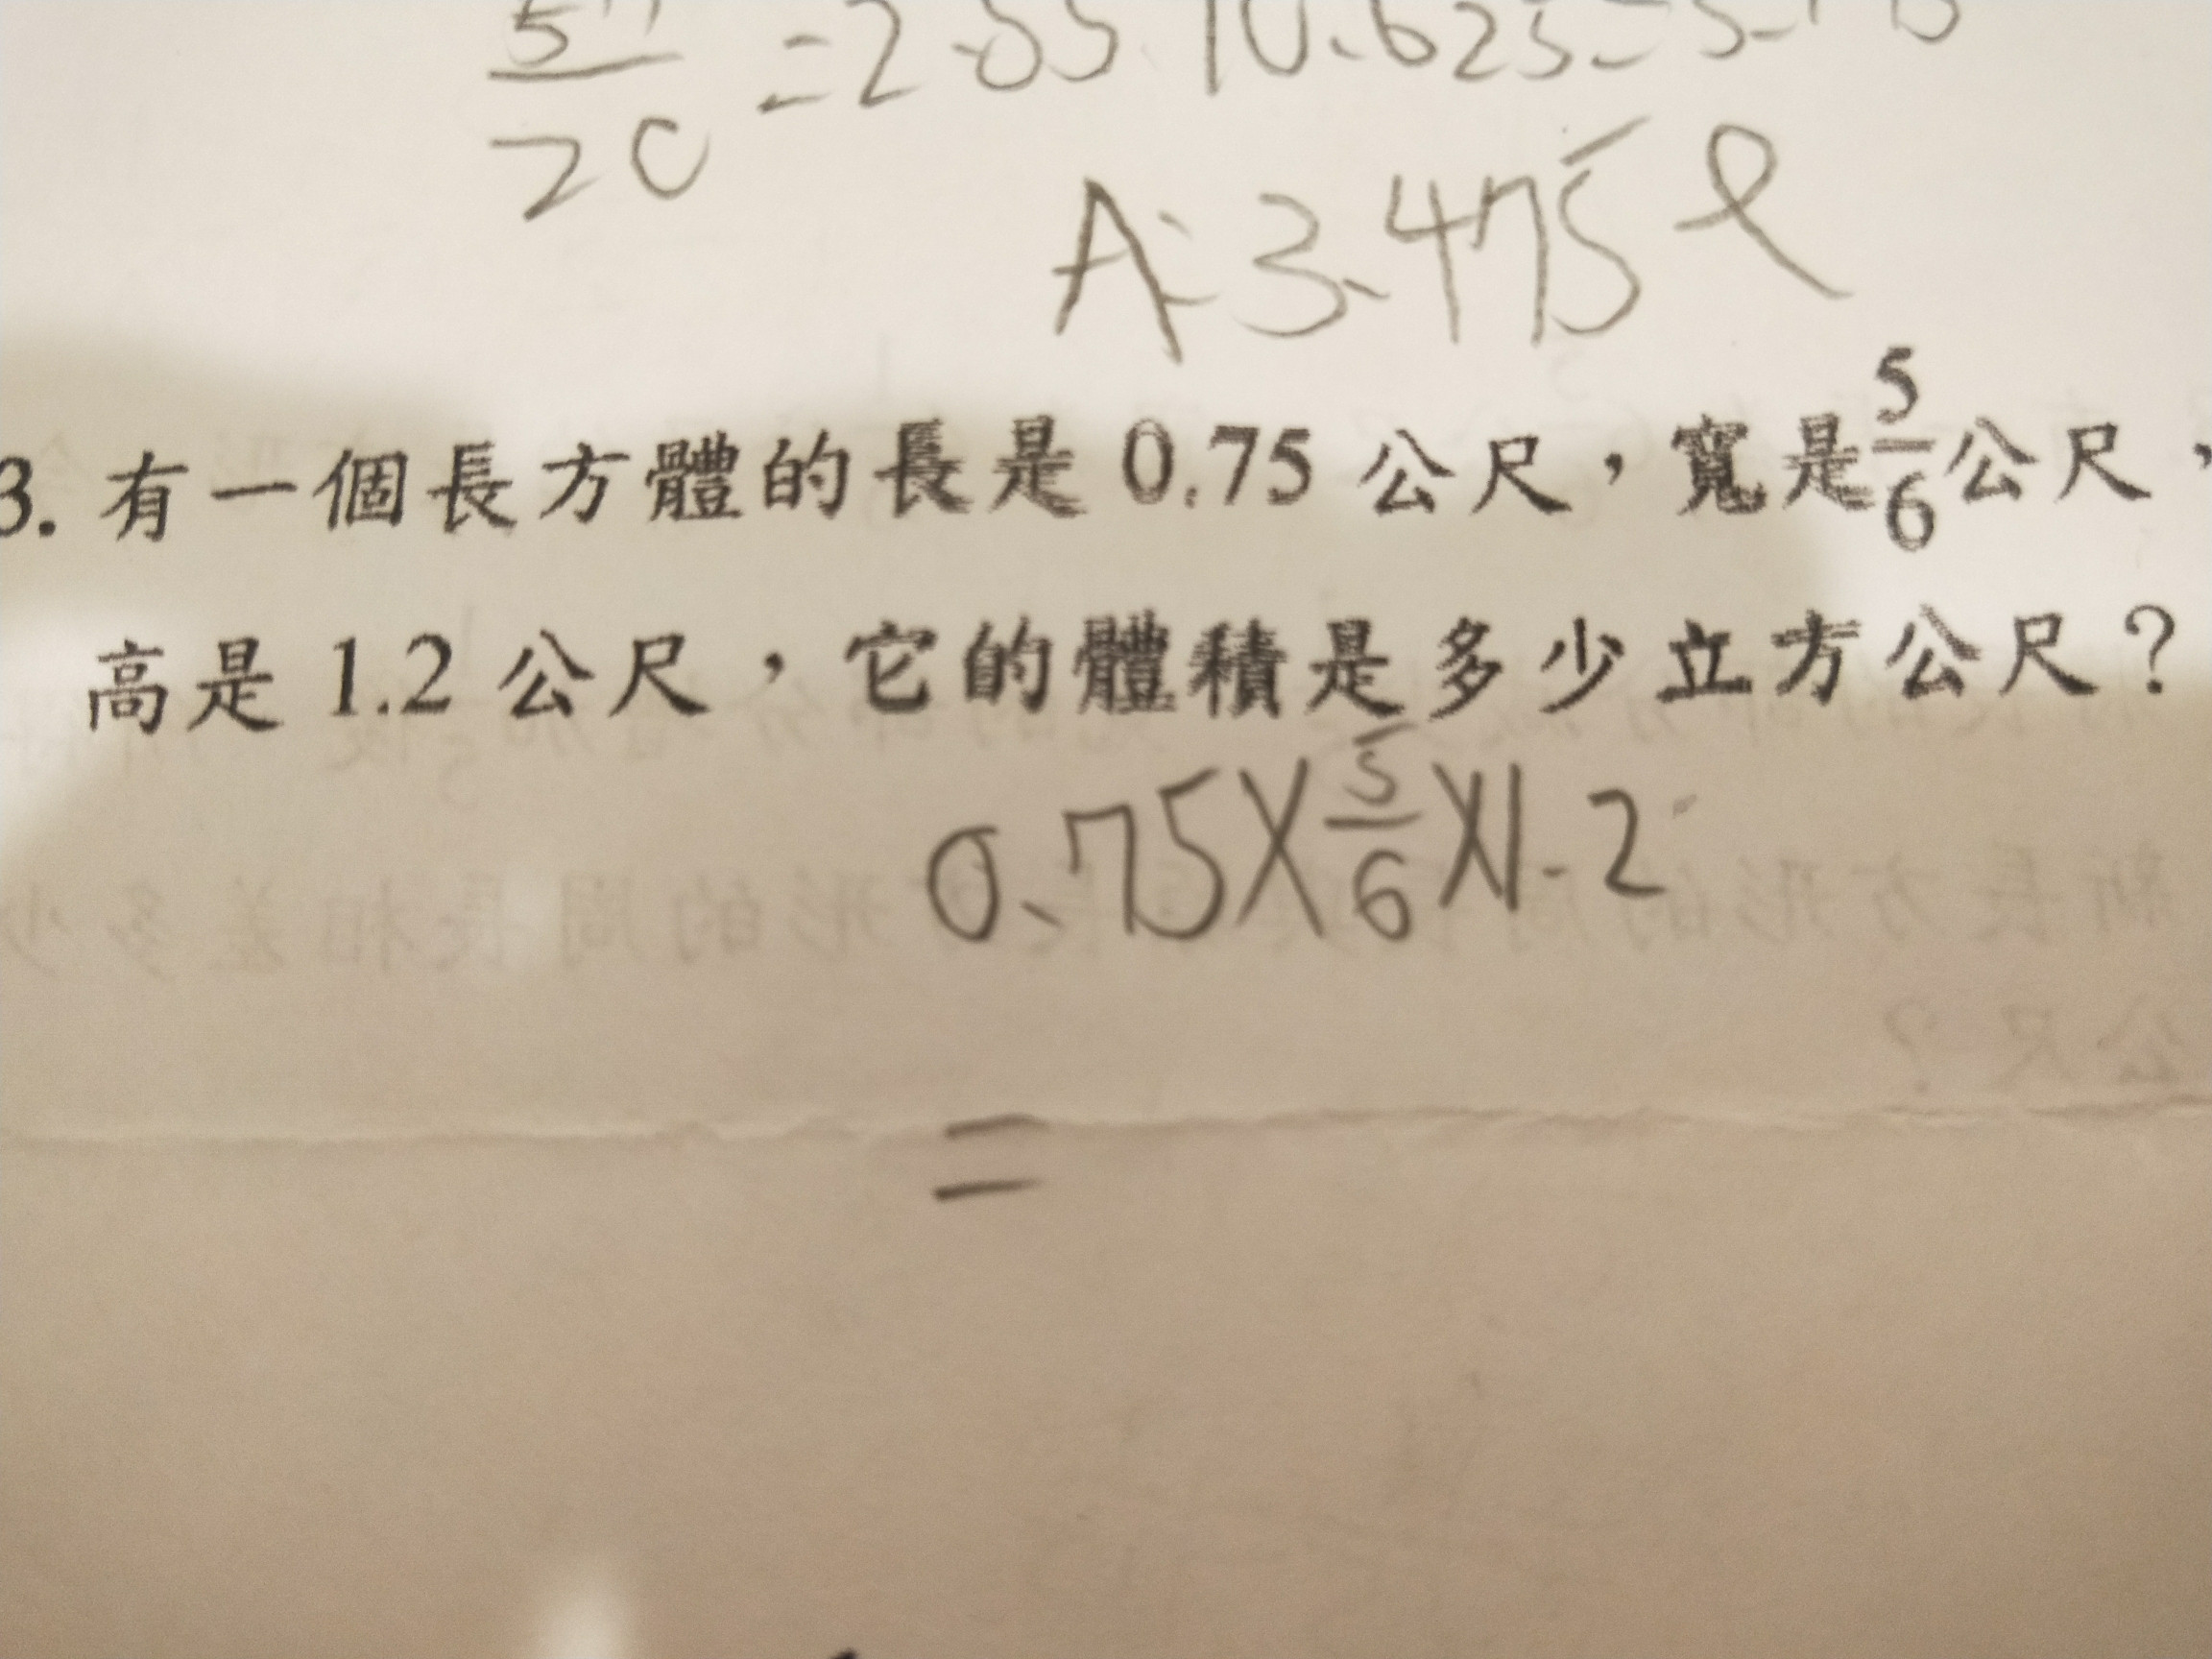 5
20
=2.85
10.625=3.
A:3.475ℓ
3. 有一個長方體的長是 0.75 公尺，寬是5/6公尺，
高是 1.2 公尺，它的體積是多少立方公尺？
0.75×5/6×1.2
=